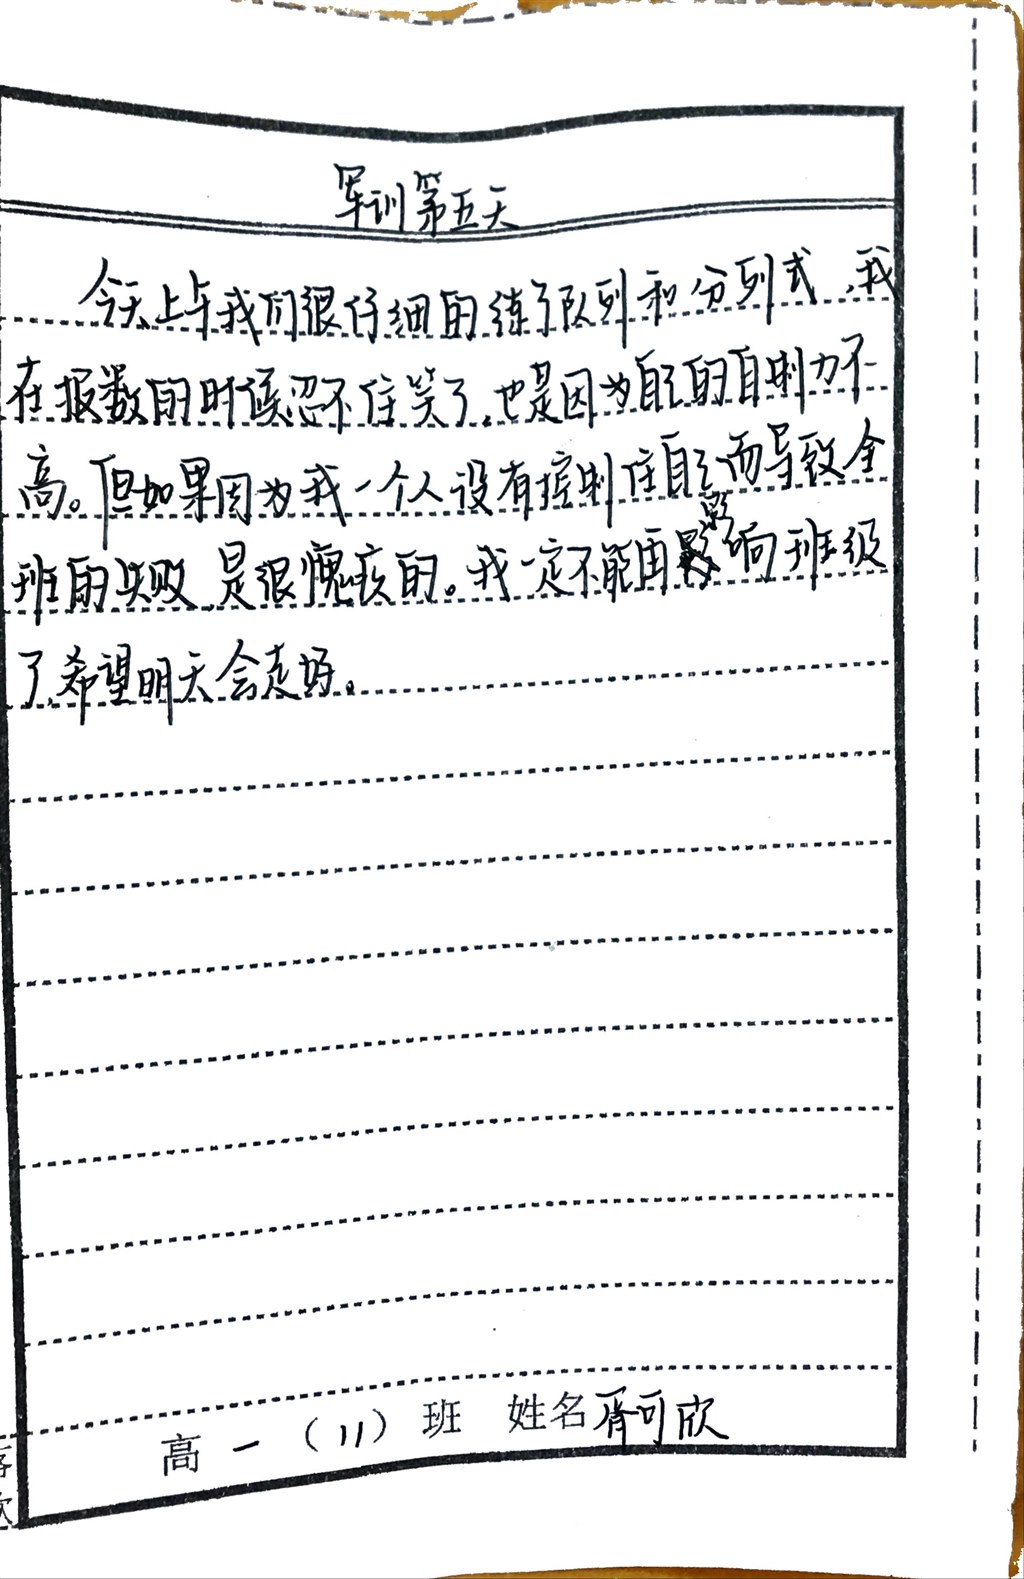 军训第五天
今天上午我们很仔细的练了队列和分列式,我
在报数的时候忍不住笑了,也是因为自己的自制力不
高。但如果因为我一个人没有控制住自己而导致全
班的失败,是很愧疚的。我一定不能再影响班级
了,希望明天会走好。
高一(11)班 姓名胥可欣